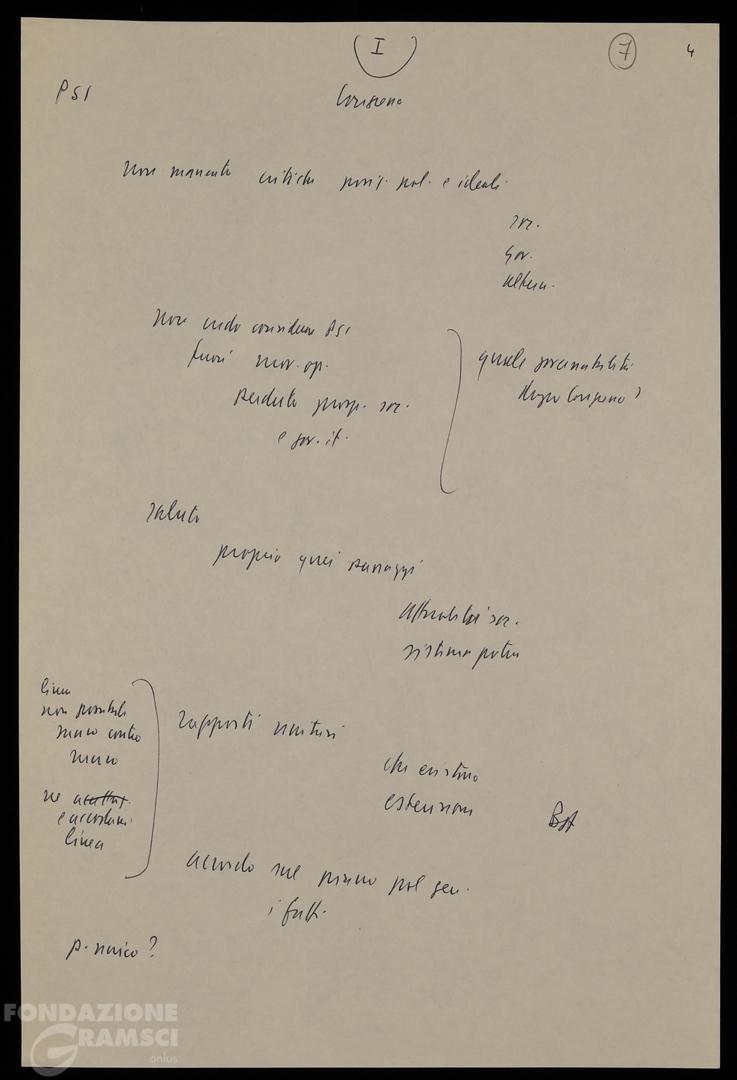 I
7
4
PSI
Congresso
non mancate critiche posiz. pol. e ideali
soc.
gov.
altern.
Non credo considerare PSI
fuori mov. op.
perduto prosp. soc.
e gov. it.
quale governabilità
dopo Congresso?
saluto
proprio quei passaggi
attualità soc.
sistema potere
linea
non possibile
muro contro
muro
né
e accodarsi
linea
rapporti unitari
che esistono
estensioni
accordo sul piano pol gen.
i fatti
p. unico?
FONDAZIONE
GRAMSCI
onlus